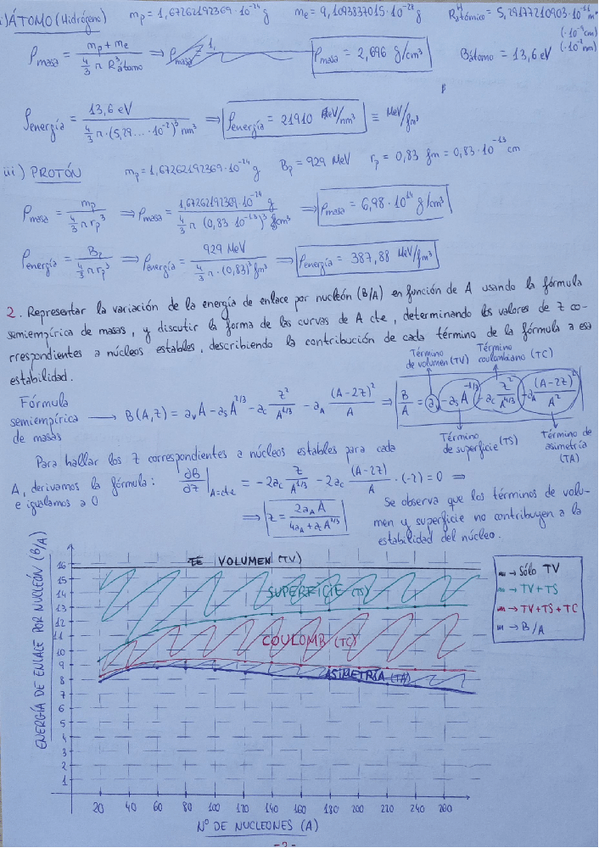 ÁTOMO (Hidrógeno) m_p = 1,67262192369·10^-24 g m_e = 9,1093837015·10^-28 g R_atómico^H = 5,29177210903·10^-11 m
(·10^-9 cm)
(·10^-2 nm)
ρ_masa = (m_p + m_e) / (4/3 π R³_átomo) ⟹ ρ_masa = 2,696 g/cm³ B_átomo = 13,6 eV
ρ_energía = 13,6 eV / (4/3 π·(5,29...·10^-2)³ nm³) ⟹ ρ_energía = 21910 eV/nm³ ≡ MeV/fm³
iii) PROTÓN m_p = 1,67262192369·10^-24 g B_p = 929 MeV r_p = 0,83 fm = 0,83·10^-13 cm
ρ_masa = m_p / (4/3 π r_p³) ⟹ ρ_masa = 1,67262192369·10^-24 g / (4/3 π (0,83·10^-13)³ cm³) ⟹ ρ_masa = 6,98·10^14 g/cm³
ρ_energía = B_p / (4/3 π r_p³) ⟹ ρ_energía = 929 MeV / (4/3 π·(0,83)³ fm³) ⟹ ρ_energía = 387,88 MeV/fm³
2. Representar la variación de la energía de enlace por nucleón (B/A) en función de A usando la fórmula
semiempírica de masas, y discutir la forma de las curvas de A cte, determinando los valores de Z co-
rrespondientes a núcleos estables, describiendo la contribución de cada término de la fórmula a esa
estabilidad.
Término de volumen (TV) Término coulombiano (TC)
Fórmula semiempírica de masas ⟶ B(A,Z) = a_v A - a_s A^2/3 - a_c Z²/A^1/3 - a_A (A-2Z)²/A ⟹ B/A = a_v - a_s A^-1/3 - a_c Z²/A^4/3 - a_A (A-2Z)²/A²
Término de superficie (TS) Término de asimetría (TA)
Para hallar los Z correspondientes a núcleos estables para cada
A, derivamos la fórmula: ∂B/∂Z |_A=cte = -2a_c Z/A^1/3 - 2a_c (A-2Z)/A · (-2) = 0 ⟹
e igualamos a 0
⟹ Z = 2a_A A / (4a_A + a_c A^2/3)
Se observa que los términos de volu-
men y superficie no contribuyen a la
estabilidad del núcleo.
ENERGÍA DE ENLACE POR NUCLEÓN (B/A)
16
15
14
13
12
11
10
9
8
7
6
5
4
3
2
1
VOLUMEN (TV)
SUPERFICIE (TS)
COULOMB (TC)
ASIMETRÍA (TA)
→ Sólo TV
→ TV+TS
→ TV+TS+TC
→ B/A
20 40 60 80 100 120 140 160 180 200 220 240 260
Nº DE NUCLEONES (A)
-2-